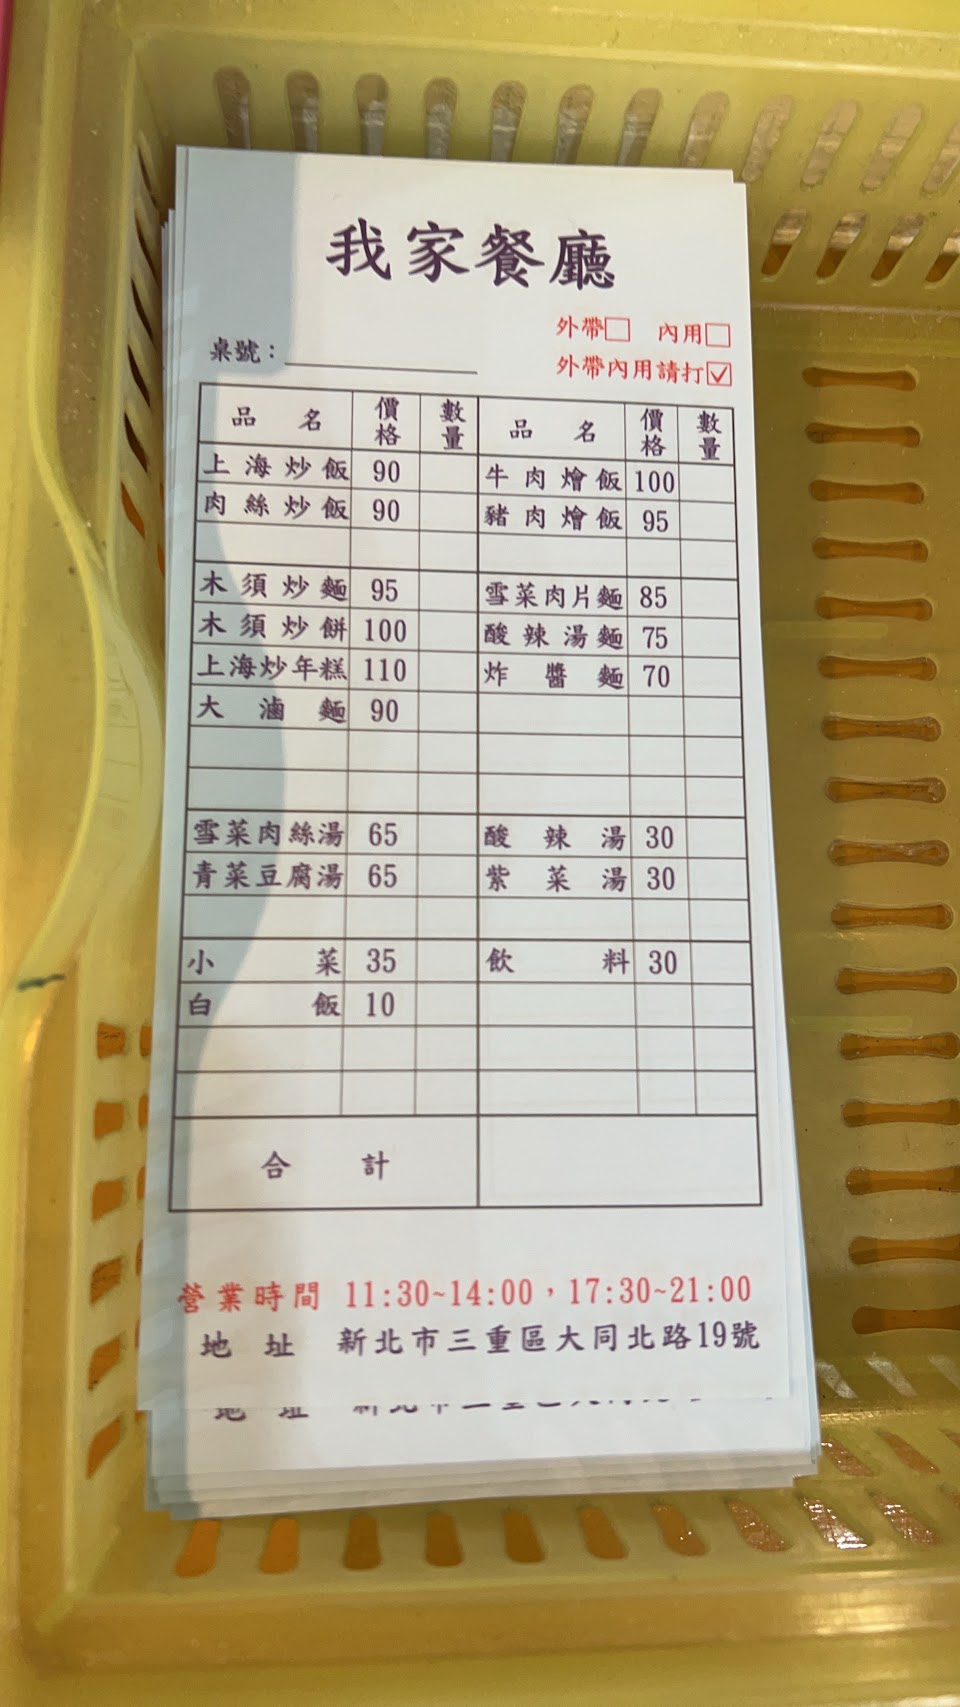 我家餐廳
外帶□ 內用□
桌號：
外帶內用請打☑
品名 價格 數量 品名 價格 數量
上海炒飯 90 牛肉燴飯 100
肉絲炒飯 90 豬肉燴飯 95
木須炒麵 95 雪菜肉片麵 85
木須炒餅 100 酸辣湯麵 75
上海炒年糕 110 炸醬麵 70
大滷麵 90
雪菜肉絲湯 65 酸辣湯 30
青菜豆腐湯 65 紫菜湯 30
小菜 35 飲料 30
白飯 10
合計
營業時間 11:30~14:00，17:30~21:00
地址 新北市三重區大同北路19號